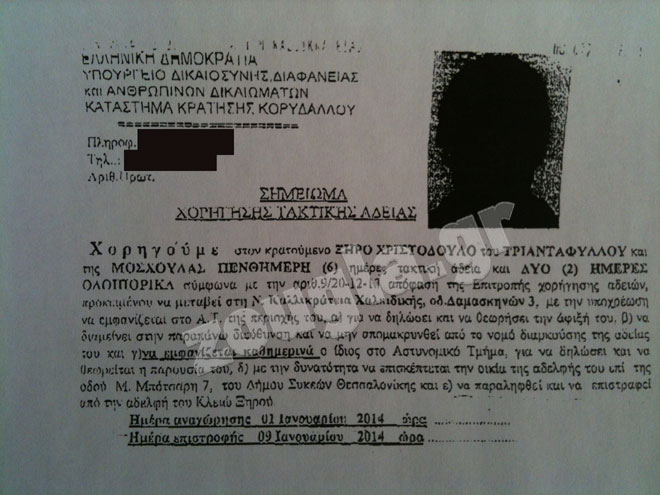 ΕΛΛΗΝΙΚΗ ΔΗΜΟΚΡΑΤΙΑ
ΥΠΟΥΡΓΕΙΟ ΔΙΚΑΙΟΣΥΝΗΣ, ΔΙΑΦΑΝΕΙΑΣ
και ΑΝΘΡΩΠΙΝΩΝ ΔΙΚΑΙΩΜΑΤΩΝ
ΚΑΤΑΣΤΗΜΑ ΚΡΑΤΗΣΗΣ ΚΟΡΥΔΑΛΛΟΥ
Πληροφ.
Τηλ..:
Αριθ.Πρωτ.
ΣΗΜΕΙΩΜΑ
ΧΟΡΗΓΗΣΗΣ ΤΑΚΤΙΚΗΣ ΑΔΕΙΑΣ
zougla.gr
Χορηγούμε στον κρατούμενο ΞΗΡΟ ΧΡΙΣΤΟΔΟΥΛΟ του ΤΡΙΑΝΤΑΦΥΛΛΟΥ και
της ΜΟΣΧΟΥΛΑΣ ημέρες τακτική άδεια και ΔΥΟ (2) ΗΜΕΡΕΣ
ΟΔΟΙΠΟΡΙΚΑ σύμφωνα με την απόφαση της Επιτροπής χορήγησης αδειών,
προκειμένου να μεταβεί στη Ν. Καλλικράτεια Χαλκιδικής, οδ.Δαμασκηνών 3, με την υποχρέωση
να εμφανίζεται στο Α.Τ. της περιοχής του, α) για να δηλώσει και να θεωρήσει την άφιξή του. β) να
διαμείνει στην παραπάνω διεύθυνση και να μην απομακρυνθεί από το νομό διαμκούσης της αδείας
του και γ)να εμφανίζεται καθημερινά ο ίδιος στο Αστυνομικό Τμήμα, για να δηλώσει και να
θεωρείται η παρουσία του, δ) με την δυνατότητα να επισκέπτεται την οικία της αδελφής του επί της
οδού Μ. Μπότσαρη 7, του Δήμου Συκεών Θεσσαλονίκης και ε) να παραληφθεί και να επιστραφεί
από την αδελφή του Κλειώ Ξηρού.
Ημέρα αναχώρησης 01 Ιανουαρίου 2014 ώρα
Ημέρα επιστροφής 09 Ιανουαρίου 2014 ώρα